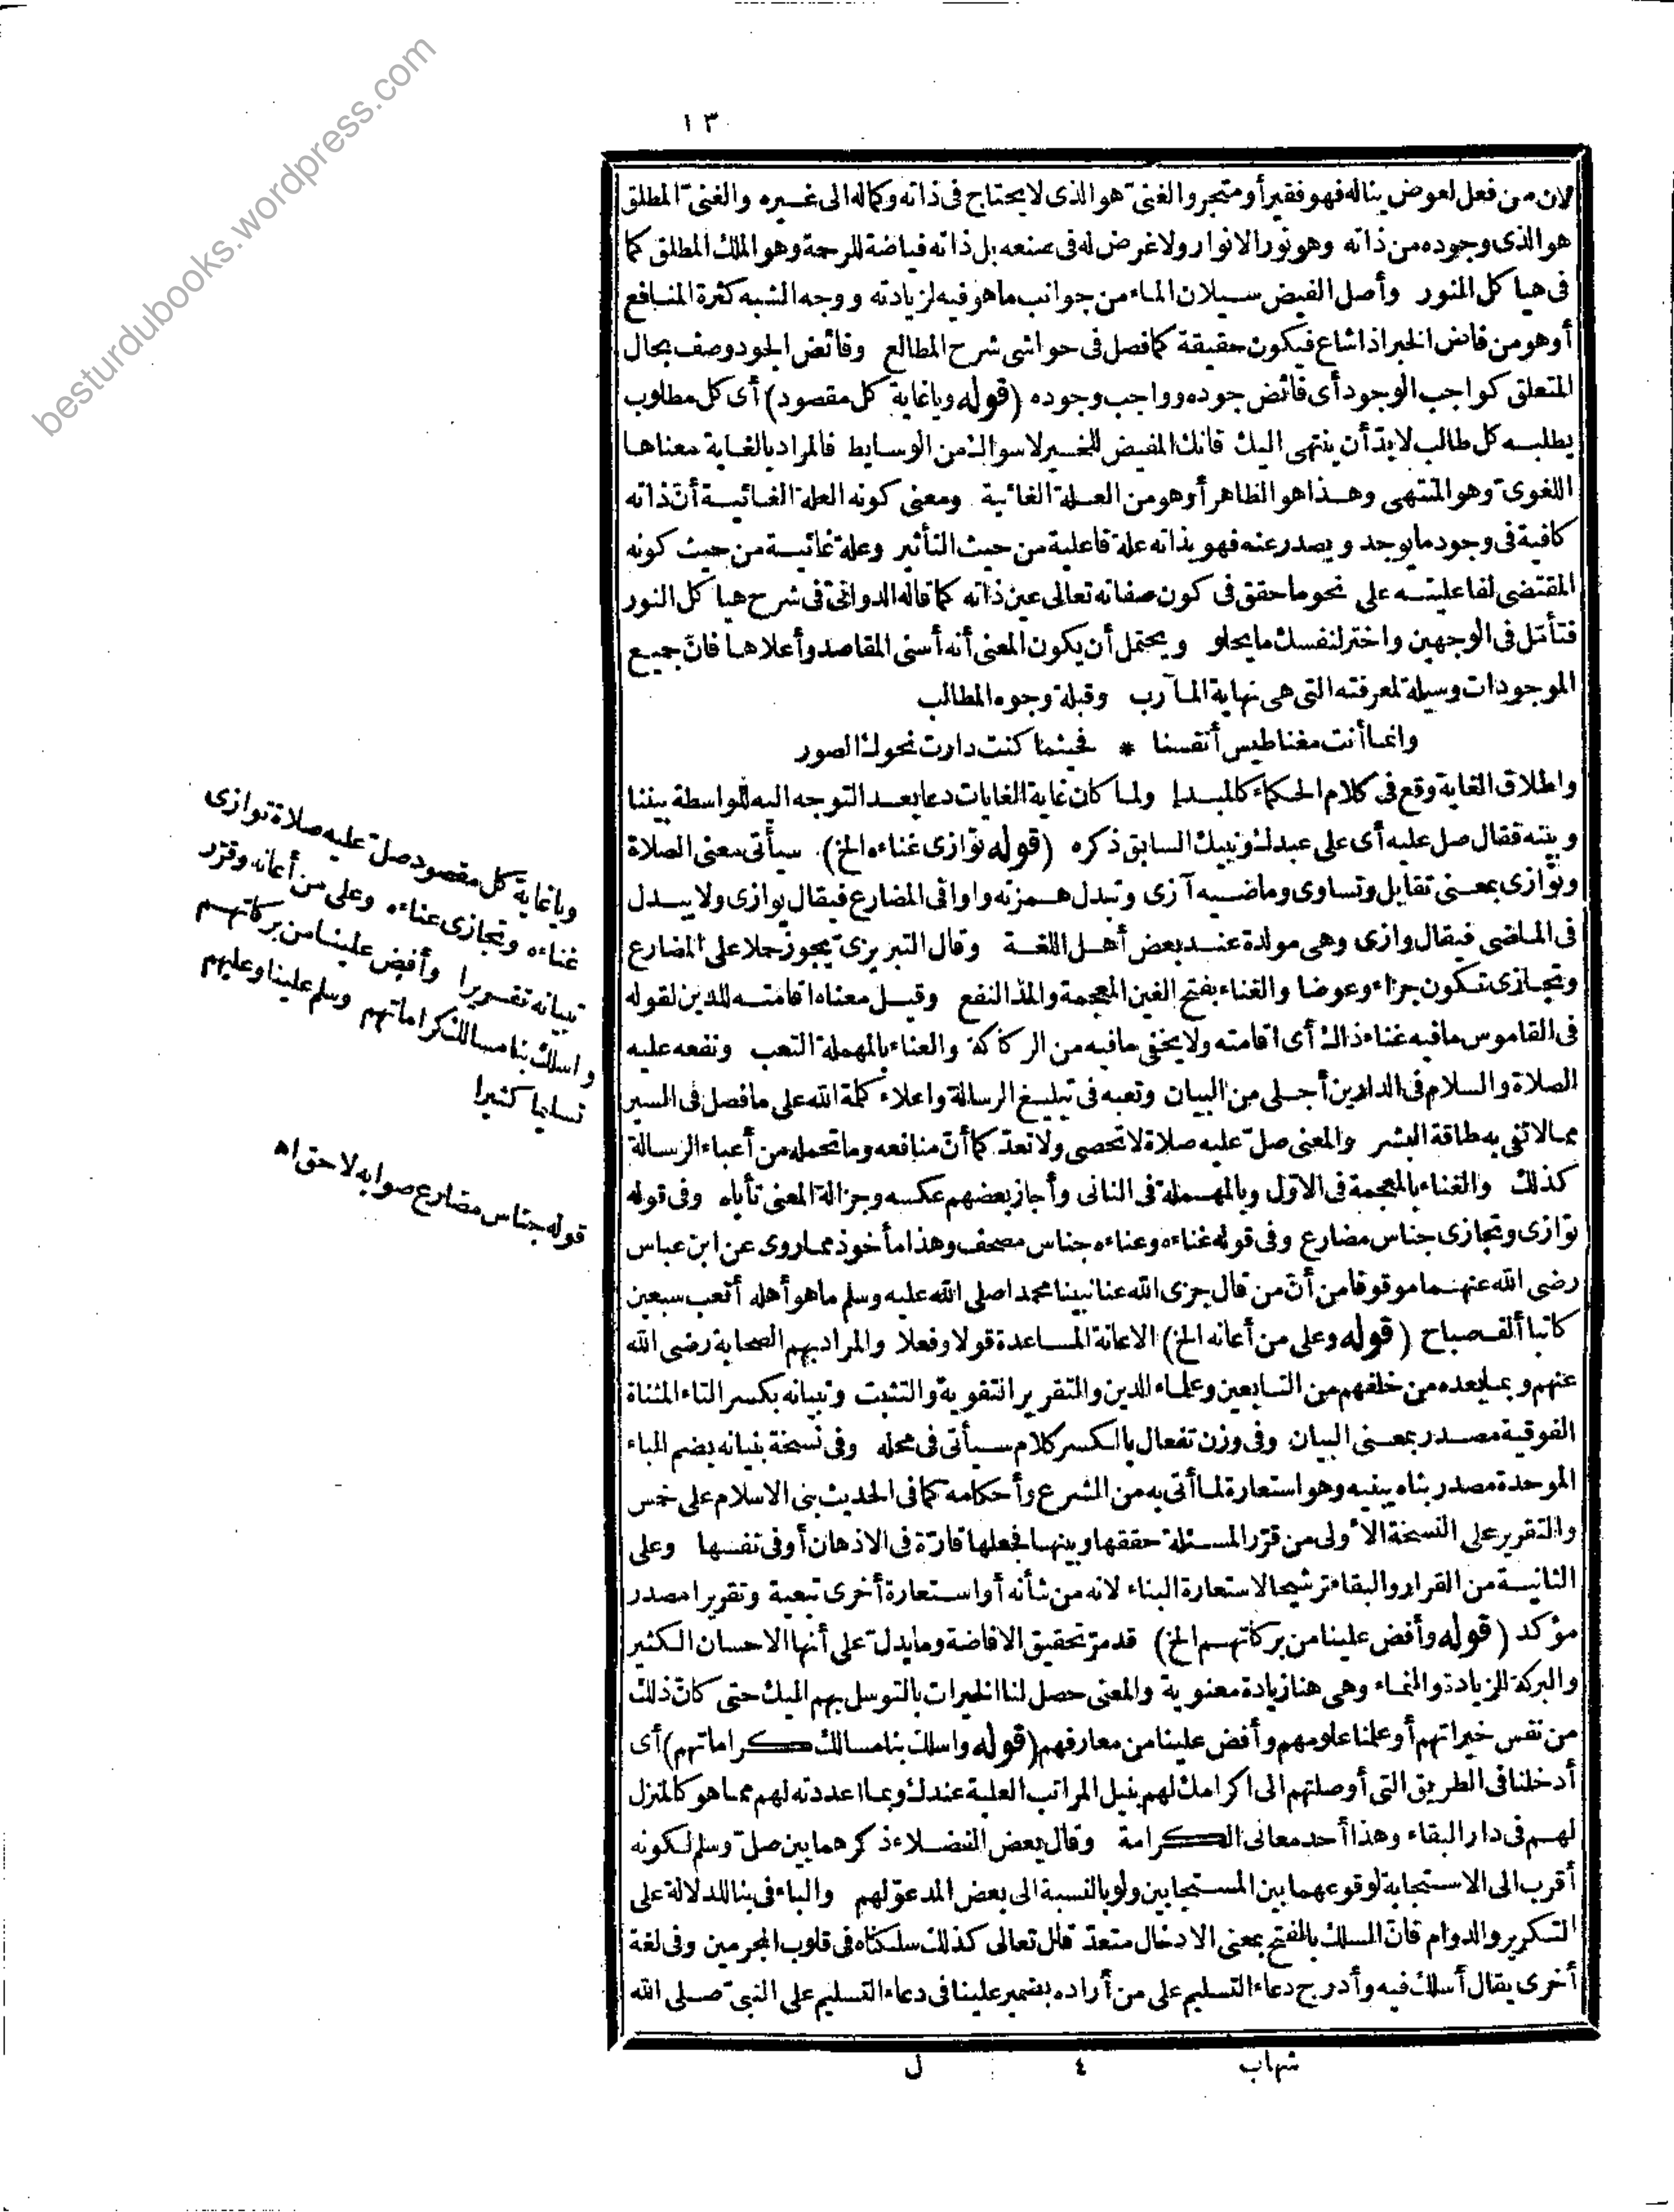 besturdubooks.wordpress.com
١٣
لان من فعل لعوض يناله فهو فقير أو متجر والغنيّ هو الذى لا يحتاج فى ذاته وكماله الى غيره والغنيّ المطلق
هو الذى وجوده من ذاته وهو نور الانوار ولا غرض له فى صنعه بل ذاته فياضة للرحمة وهو الملك المطلق كما
فى هياكل النور وأصل الفيض سيلان الماء من جوانب ما هو فيه لزيادته ووجه الشبه كثرة المنافع
أو هو من فاض الخبر اذا شاع فيكون حقيقة كما فصل فى حواشى شرح المطالع وفائض الجود وصف بحال
المتعلق كواجب الوجود أى فائض جوده وواجب وجوده (قوله ويا غاية كل مقصود) أى كل مطلوب
يطلبه كل طالب لابدّ أن ينتهى اليك فانك المفيض للخير لا سواك من الوسايط فالمراد بالغاية معناها
اللغوىّ وهو المنتهى وهذا هو الظاهر أو هو من العلة الغائية ومعنى كونه العلة الغائية أنّ ذاته
كافية فى وجود ما يوجد ويصدر عنه فهو بذاته علة فاعلية من حيث التأثير وعلة غائية من حيث كونه
المقتضى لفاعليته على نحو ما حقق فى كون صفاته تعالى عين ذاته كما قاله الدوانىّ فى شرح هياكل النور
فتأمّل فى الوجهين واختر لنفسك ما يحلو ويحتمل أن يكون المعنى أنه أسنى المقاصد وأعلاها فانّ جميع
الموجودات وسيلة لمعرفته التى هى نهاية المآرب وقبلة وجوه المطالب
وانما أنت مغناطيس أنفسنا * فحيثما كنت دارت نحوك الصور
واطلاق الغاية وقع فى كلام الحكماء كالمبدا ولما كان غاية الغايات دعا بعد التوجه اليه للواسطة بيننا
وبينه فقال صل عليه أى على عبدك ونبيك السابق ذكره (قوله توازى غناءه الخ) سيأتى معنى الصلاة
وتؤازى بمعنى تقابل وتساوى وماضيه آزى وتبدل همزته واوا فى المضارع فيقال يوازى ولا يبدل
فى الماضى فيقال وازى وهى مولدة عند بعض أهل اللغة وقال التبريزىّ يجوز حملا على المضارع
وتجازى تكون جزاء وعوضا والغناء بفتح الغين المعجمة والمدّ النفع وقيل معناه اقامته للدين لقوله
فى القاموس ما فيه غناء ذاك أى اقامته ولا يخفى ما فيه من الركاكة والعناء بالمهملة التعب ونفعه عليه
الصلاة والسلام فى الدارين أجلى من البيان وتعبه فى تبليغ الرسالة واعلاء كلمة الله على ما فصل فى السير
مما لا تفى به طاقة البشر والمعنى صلّ عليه صلاة لا تحصى ولا تعدّ كما أنّ منافعه وما تحمله من أعباء الرسالة
كذلك والغناء بالمعجمة فى الاوّل وبالمهملة فى الثانى وأجاز بعضهم عكسه وجزالة المعنى تأباه وفى قوله
توازى وتجازى جناس مضارع وفى قوله غناءه وعناءه جناس مصحف وهذا مأخوذ مما روى عن ابن عباس
رضى الله عنهما موقوفا من أنّ من قال جزى الله عنا نبينا محمدا صلى الله عليه وسلم ما هو أهله أتعب سبعين
كاتبا ألف صباح (قوله وعلى من أعانه الخ) الاعانة المساعدة قولا وفعلا والمراد بهم الصحابة رضى الله
عنهم وبما بعده من خلفهم من التابعين وعلماء الدين والتقرير التقوية والتثبيت وتبيانه بكسر التاء المثناة
الفوقية مصدر بمعنى البيان وفى وزن تفعال بالكسر كلام سيأتى فى محله وفى نسخة بنيانه بضم الباء
الموحدة مصدر بناه يبنيه وهو استعارة لما أتى به من الشرع وأحكامه كما فى الحديث بنى الاسلام على خمس
والتقرير على النسخة الاولى من قرّر المسئلة حققها وبينها فجعلها قارّة فى الاذهان أو فى نفسها وعلى
الثانية من القرار والبقاء ترشيحا لاستعارة البناء لانه من شأنه أو استعارة أخرى تبعية وتقريرا مصدر
مؤكد (قوله وأفض علينا من بركاتهم الخ) قد مرّ تحقيق الافاضة وما يدلّ على أنها الاحسان الكثير
والبركة الزيادة والنماء وهى هنا زيادة معنوية والمعنى حصل لنا الخيرات بالتوسل بهم اليك حتى كانّ ذلك
من نفس خيراتهم أو علمنا علومهم وأفض علينا من معارفهم (قوله واسلك بنا مسالك كراماتهم) أى
أدخلنا فى الطريق التى أوصلتهم الى اكرامك لهم بنيل المراتب العلية عندك وبما اعددته لهم مما هو كالمنزل
لهم فى دار البقاء وهذا أحد معانى الكرامة وقال بعض الفضلاء ذكرهما بين صلّ وسلم لكونه
أقرب الى الاستجابة لوقوعهما بين المستجابين ولو بالنسبة الى بعض المدعوّ لهم والباء فى بنا للدلالة على
التكرير والدوام فانّ السلك بالفتح بمعنى الادخال متعدّ قال تعالى كذلك سلكناه فى قلوب المجرمين وفى لغة
أخرى يقال أسلك فيه وأدرج دعاء التسليم على من أراده بضمير علينا فى دعاء التسليم على النبىّ صلى الله
ويا غاية كل مقصود صلّ عليه صلاة توازى
غناءه وتجازى عناءه وعلى من أعانه وقرّر
تبيانه تقريرا وأفض علينا من بركاتهم
واسلك بنا مسالك كراماتهم وسلم علينا وعليهم
تسليما كثيرا
قوله جناس مضارع صوابه لاحق اه
شهاب ٤ ل